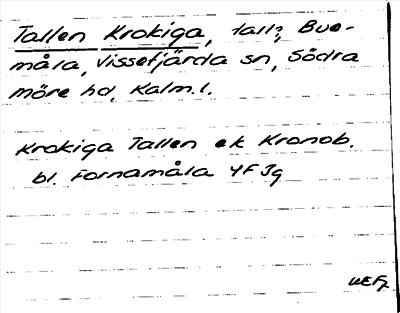 Tallen Krokiga, tall?, Bue-
måla, Vissefjärda sn, Södra
möre hd, Kalm.l.
Krokiga Tallen ek Kronob.
bl. Fornamåla 4F3g